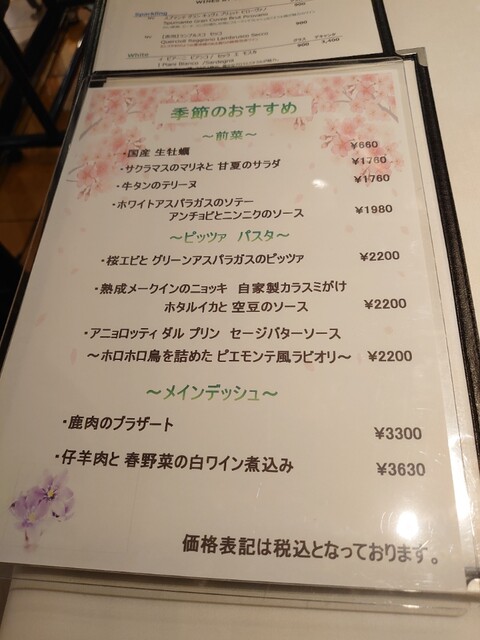 Sparkling
White
季節のおすすめ
～前菜～
・国産 生牡蠣 ¥660
・サクラマスのマリネと 甘夏のサラダ ¥1760
・牛タンのテリーヌ ¥1760
・ホワイトアスパラガスのソテー
アンチョビとニンニクのソース ¥1980
～ピッツァ パスタ～
・桜エビと グリーンアスパラガスのピッツァ ¥2200
・熟成メークインのニョッキ 自家製カラスミがけ
ホタルイカと 空豆のソース ¥2200
・アニョロッティ ダル プリン セージバターソース
～ホロホロ鳥を詰めた ピエモンテ風ラビオリ～ ¥2200
～メインデッシュ～
・鹿肉のブラザート ¥3300
・仔羊肉と 春野菜の白ワイン煮込み ¥3630
価格表記は税込となっております。